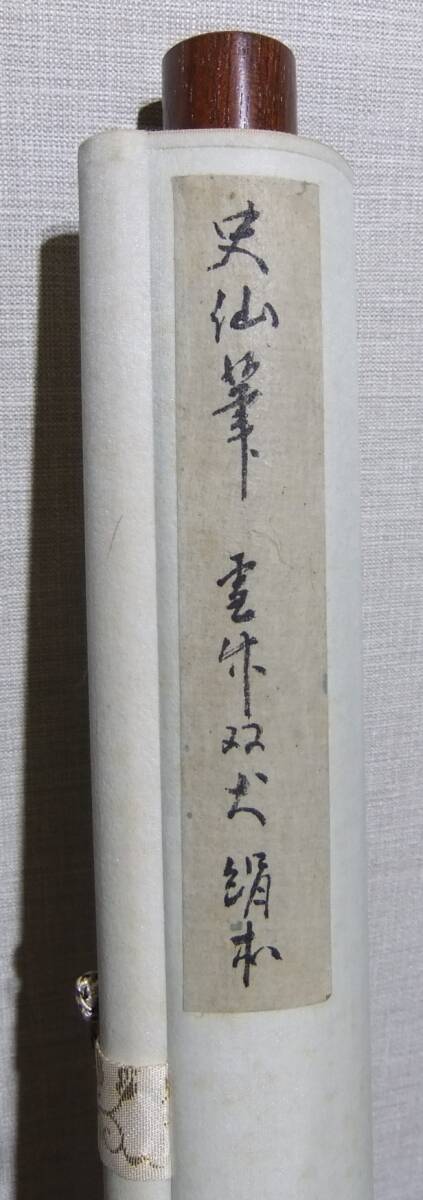 史仙筆 雪竹双犬 絹本